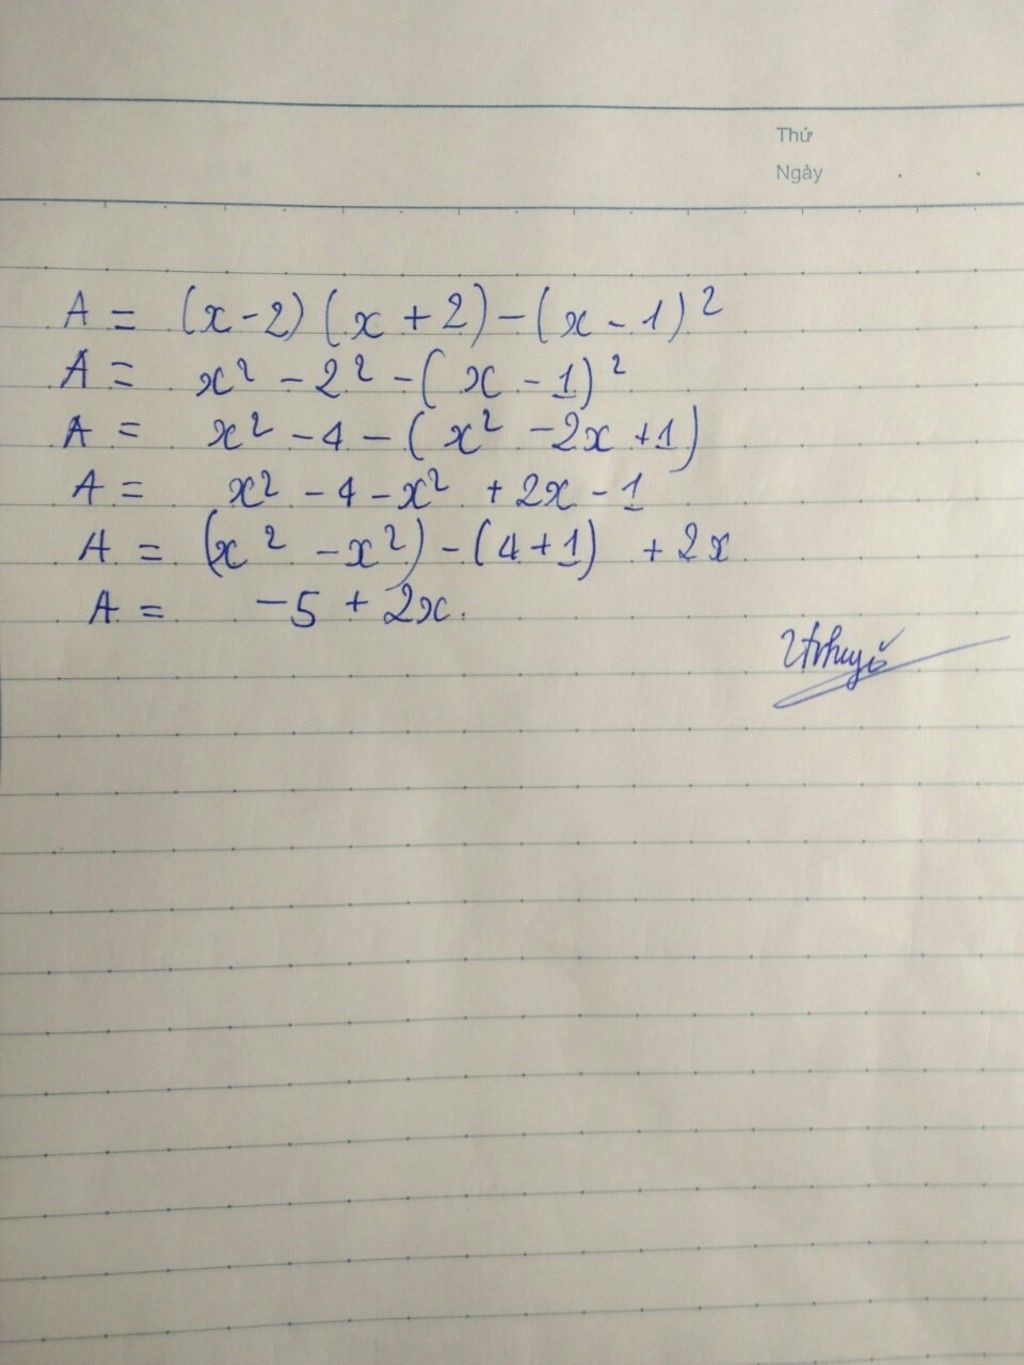 Thứ
Ngày
A = (x-2)(x+2)-(x-1)²
A = x² - 2² - (x - 1)²
A = x² - 4 - (x² - 2x + 1)
A = x² - 4 - x² + 2x - 1
A = (x² - x²) - (4+1) + 2x
A = -5 + 2x.